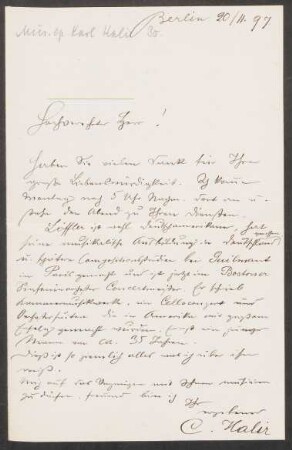 Mus. ep. Karl Halir 30.
Berlin 20/11. 97
Hochverehrter Herr!
Haben Sie vielen Dank für Ihre
große Liebenswürdigkeit. Ich komme
Montag nach 5 Uhr Nachm. dort an u.
stehe den Abend zu Ihren Diensten.
Löffler ist wohl Deutschamerikaner, hat
seine musikalische Ausbildung in Deutschland genossen
u. später Compositionsstudien bei Guiraud
in Paris gemacht und ist jetzt im Bostoner
Sinfonieorchester Concertmeister. Er schrieb
Kammermusikwerke, ein Celloconcert und
Orchestersuiten die in Amerika mit großem
Erfolg gemacht wurden. Er ist ein junger
Mann von ca. 35 Jahren.
Dieß ist so ziemlich alles was ich über ihn
weiß.
Mich auf das Vergnügen mit Ihnen musiciren
zu dürfen, freuend bin ich Ihr
ergebener
C. Halir